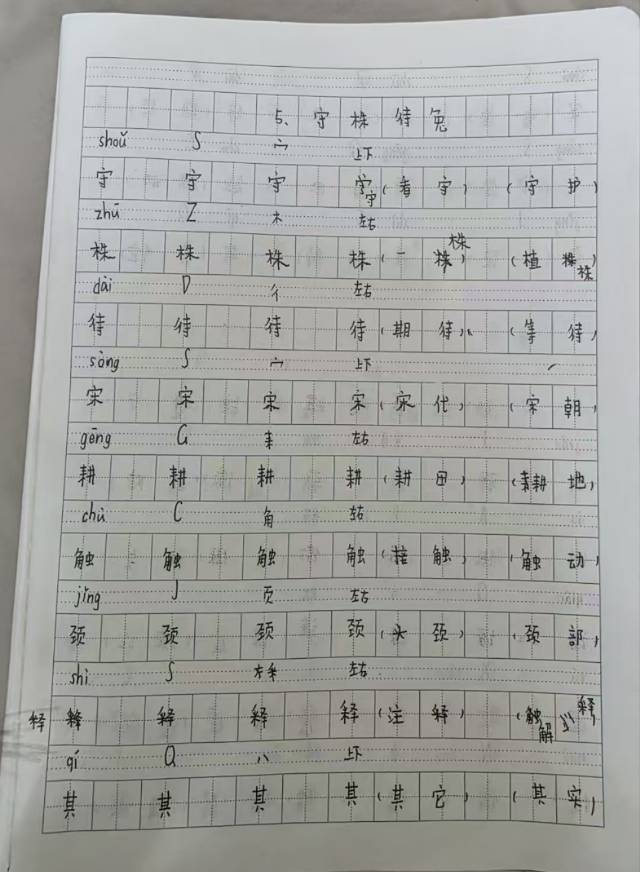 5、守株待兔
shoǔ S 宀 上下
守 守 守 守 (看守) (守护)
zhū Z 木 左右
株 株 株 株 (一株) (植株)
dài D 彳 左右
待 待 待 待 (期待)、 (等待)
sòng S 宀 上下
宋 宋 宋 宋 (宋代) (宋朝)
gēng G 耒 左右
耕 耕 耕 耕 (耕田) (耕地)
chù C 角 左右
触 触 触 触 (接触) (触动)
jǐng J 页 左右
颈 颈 颈 颈 (头颈) (颈部)
shì S 左右
释 释 释 释 (注释) (解释)
qí Q 八 上下
其 其 其 其 (其它) (其实)